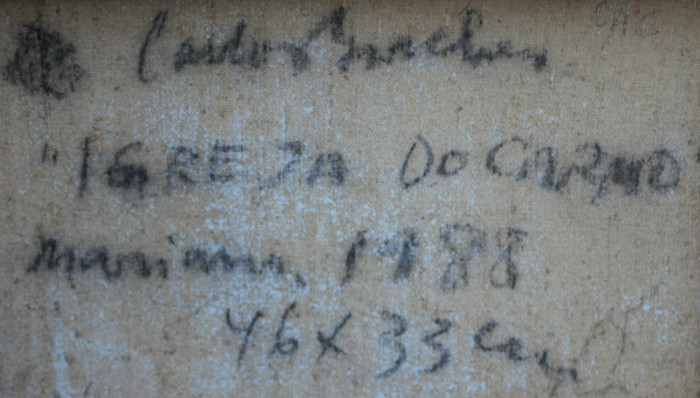 Carlos Bracher
"IGREJA DO CARMO"
mariana, 1988
46 x 33 cm